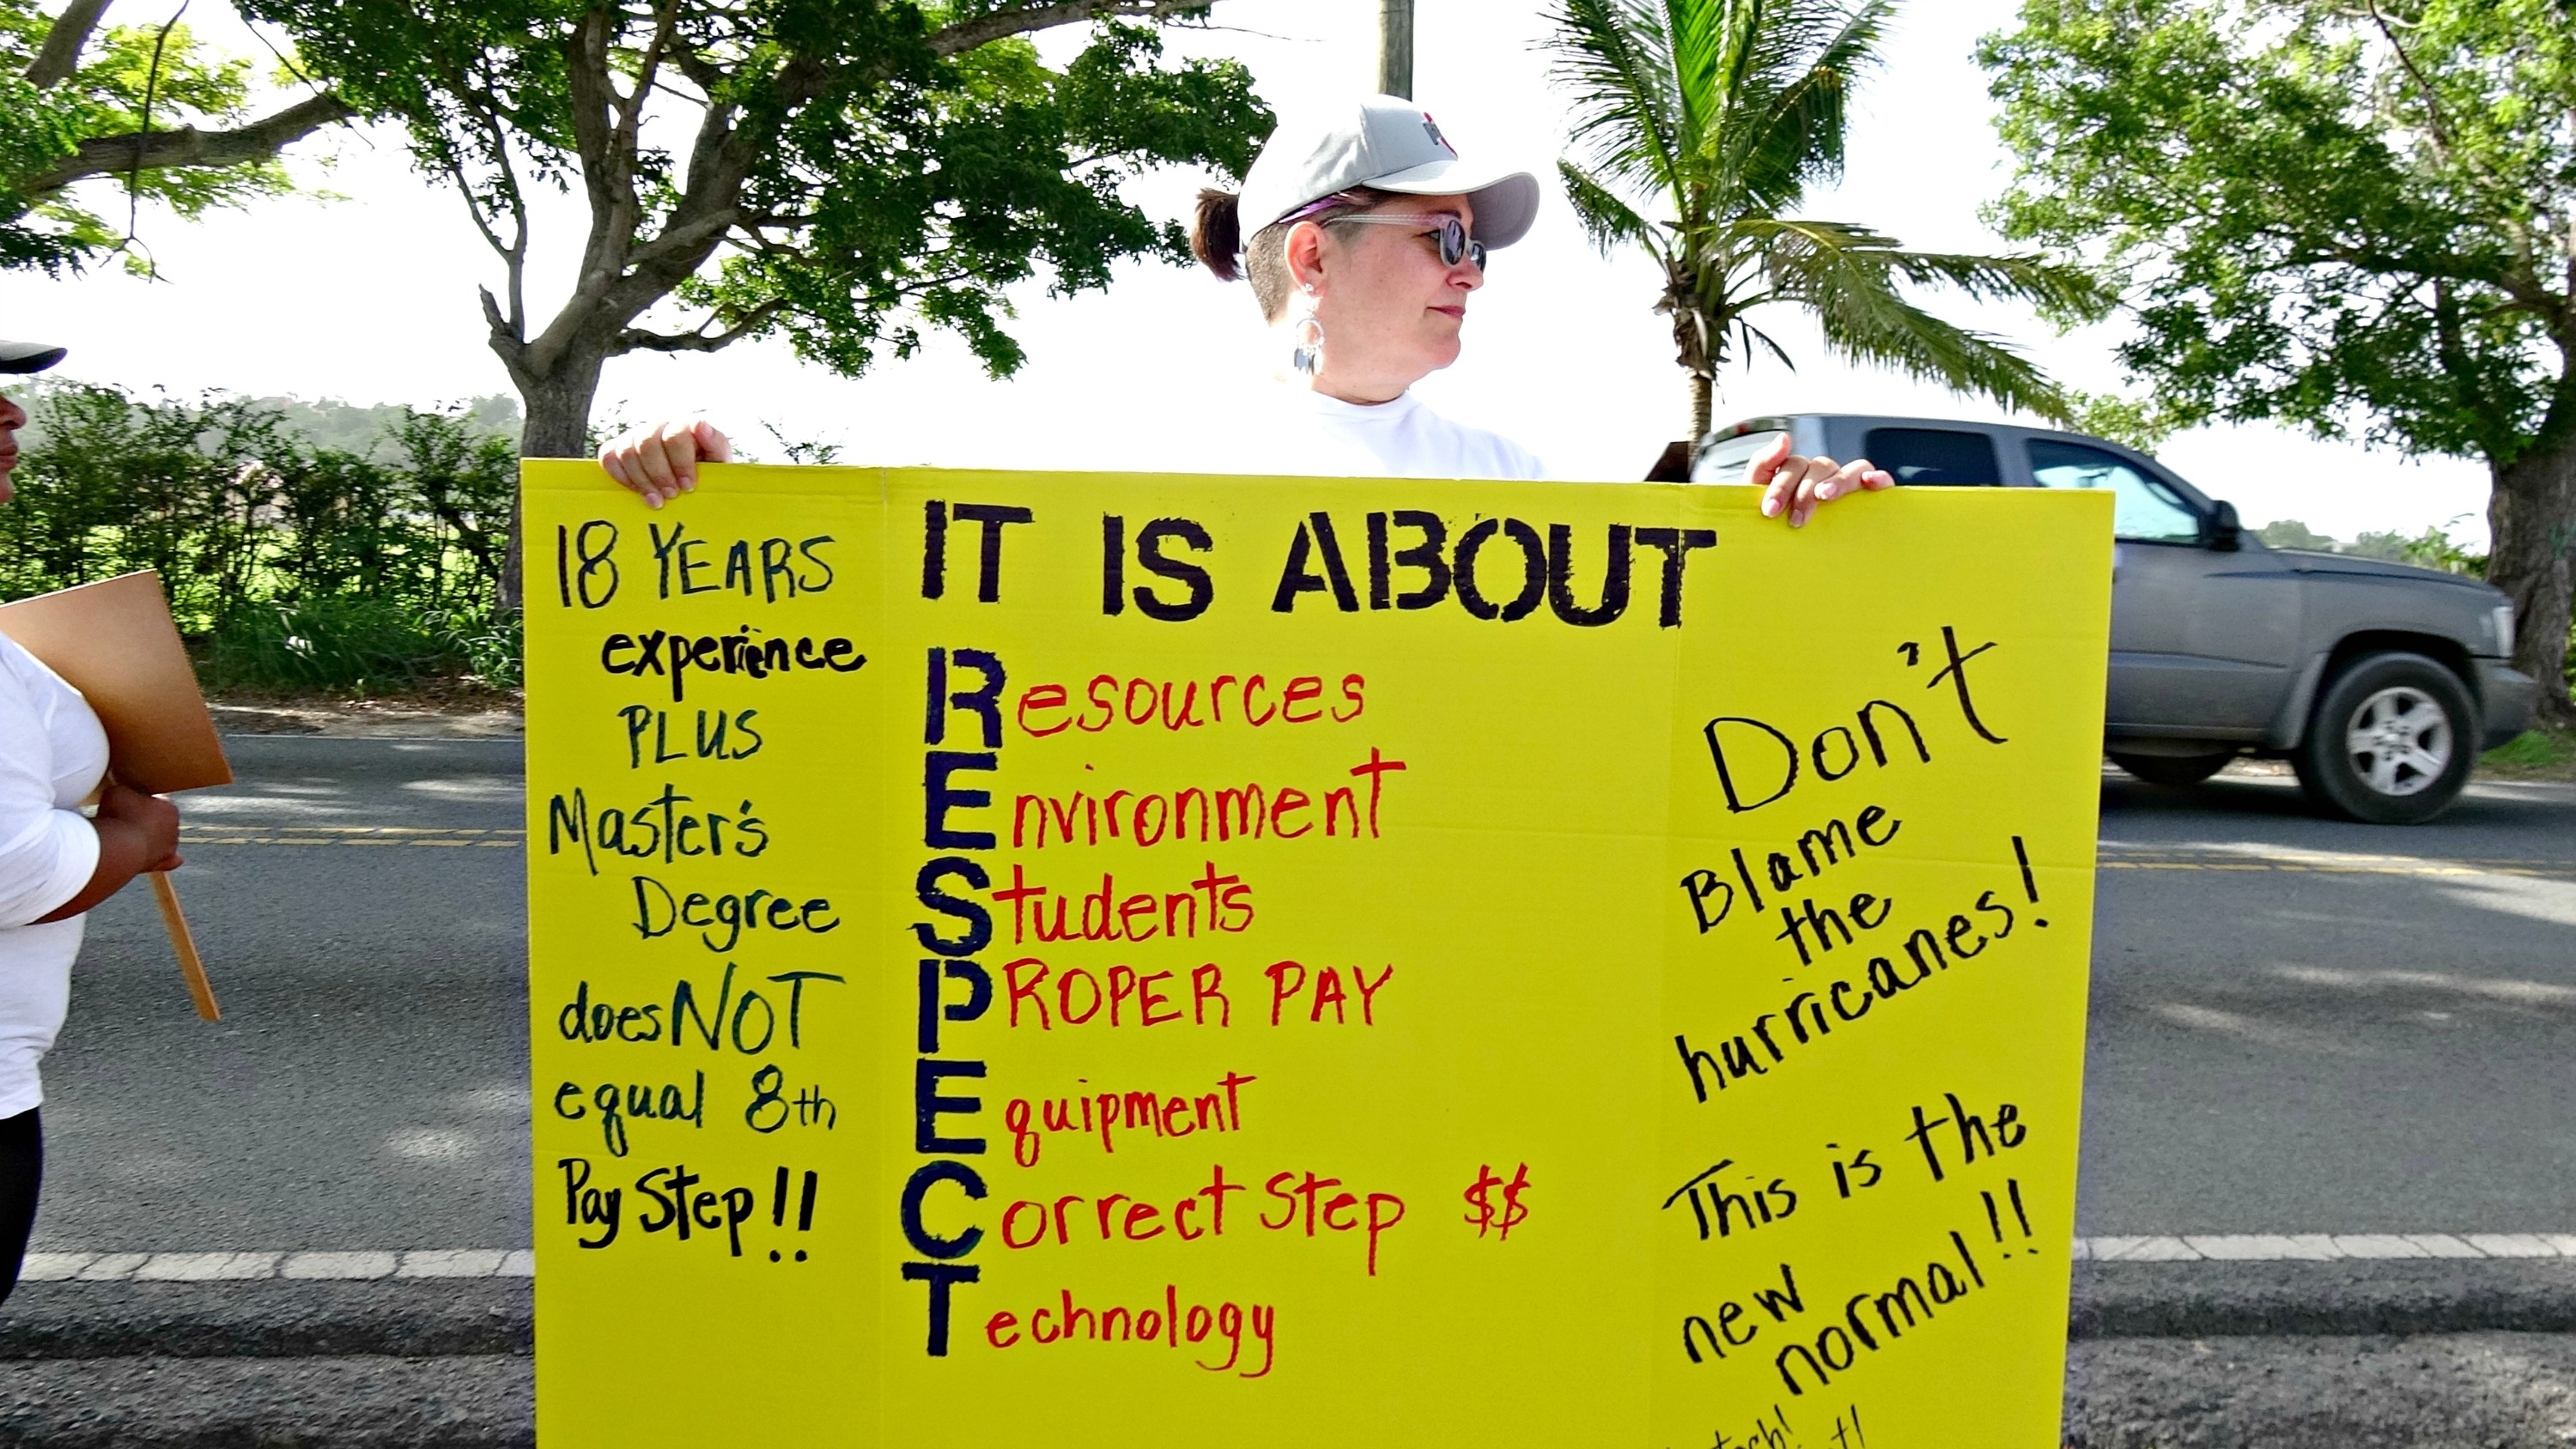 18 YEARS
experience
PLUS
Master's
Degree
does NOT
equal 8th
Pay Step!!
IT IS ABOUT
Resources
Environment
Students
PROPER PAY
Equipment
Correct Step $$
Technology
Don't
Blame
the
hurricanes!
This is the
new
normal!!